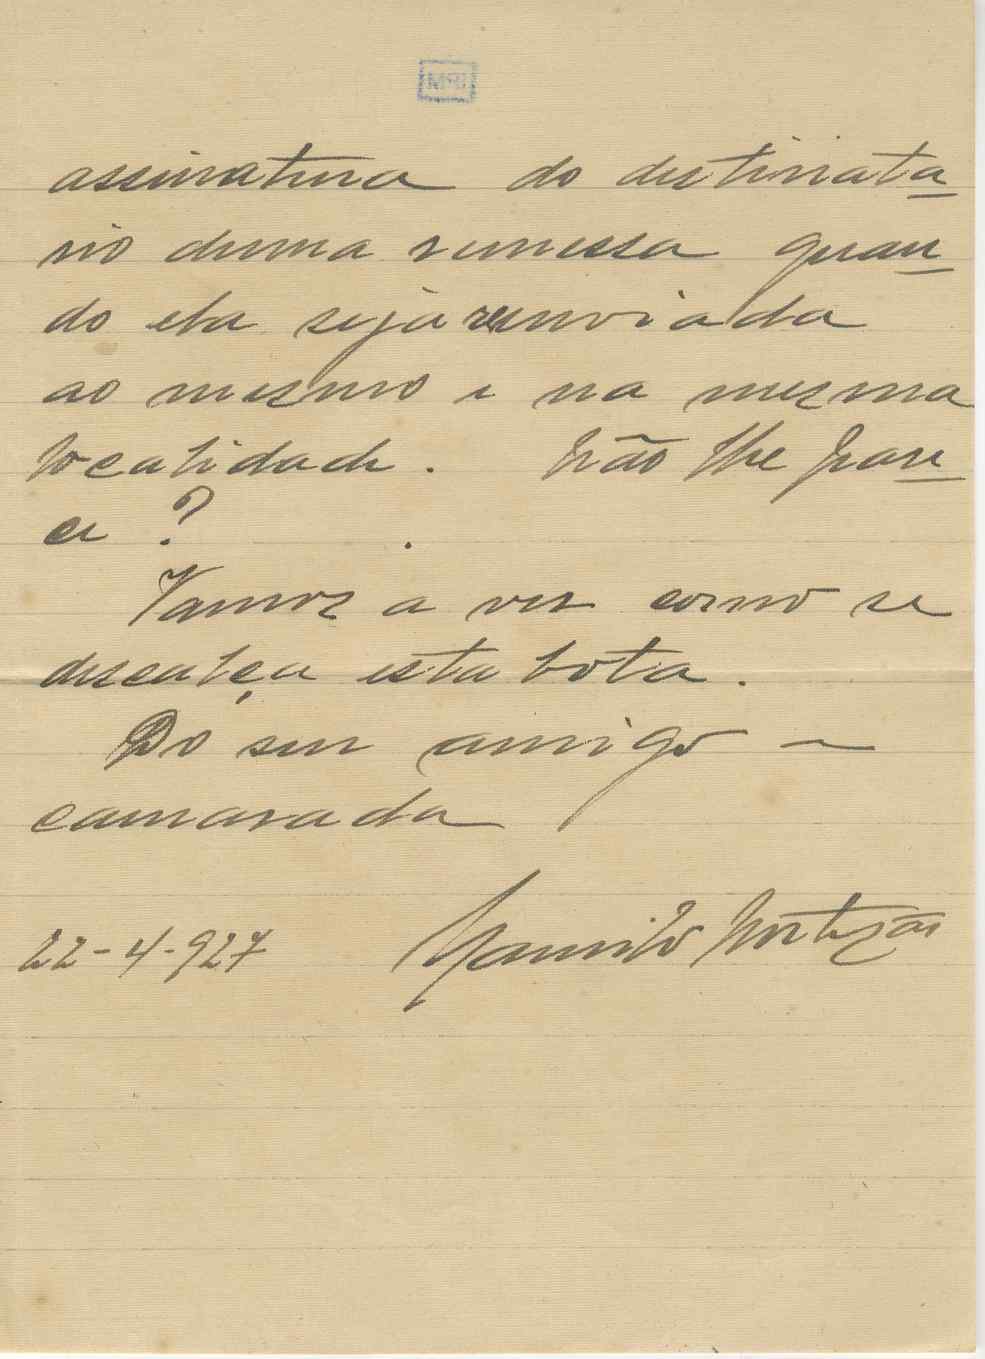 assinatura do destinata
rio duma remessa quan
do ela seja reenviada
ao mesmo e na mesma
localidade. Não lhe pare
ce?
Vamos a ver como se
descalça esta bota.
Do seu amigo e
camarada
22-4-927 Camilo Cortesão